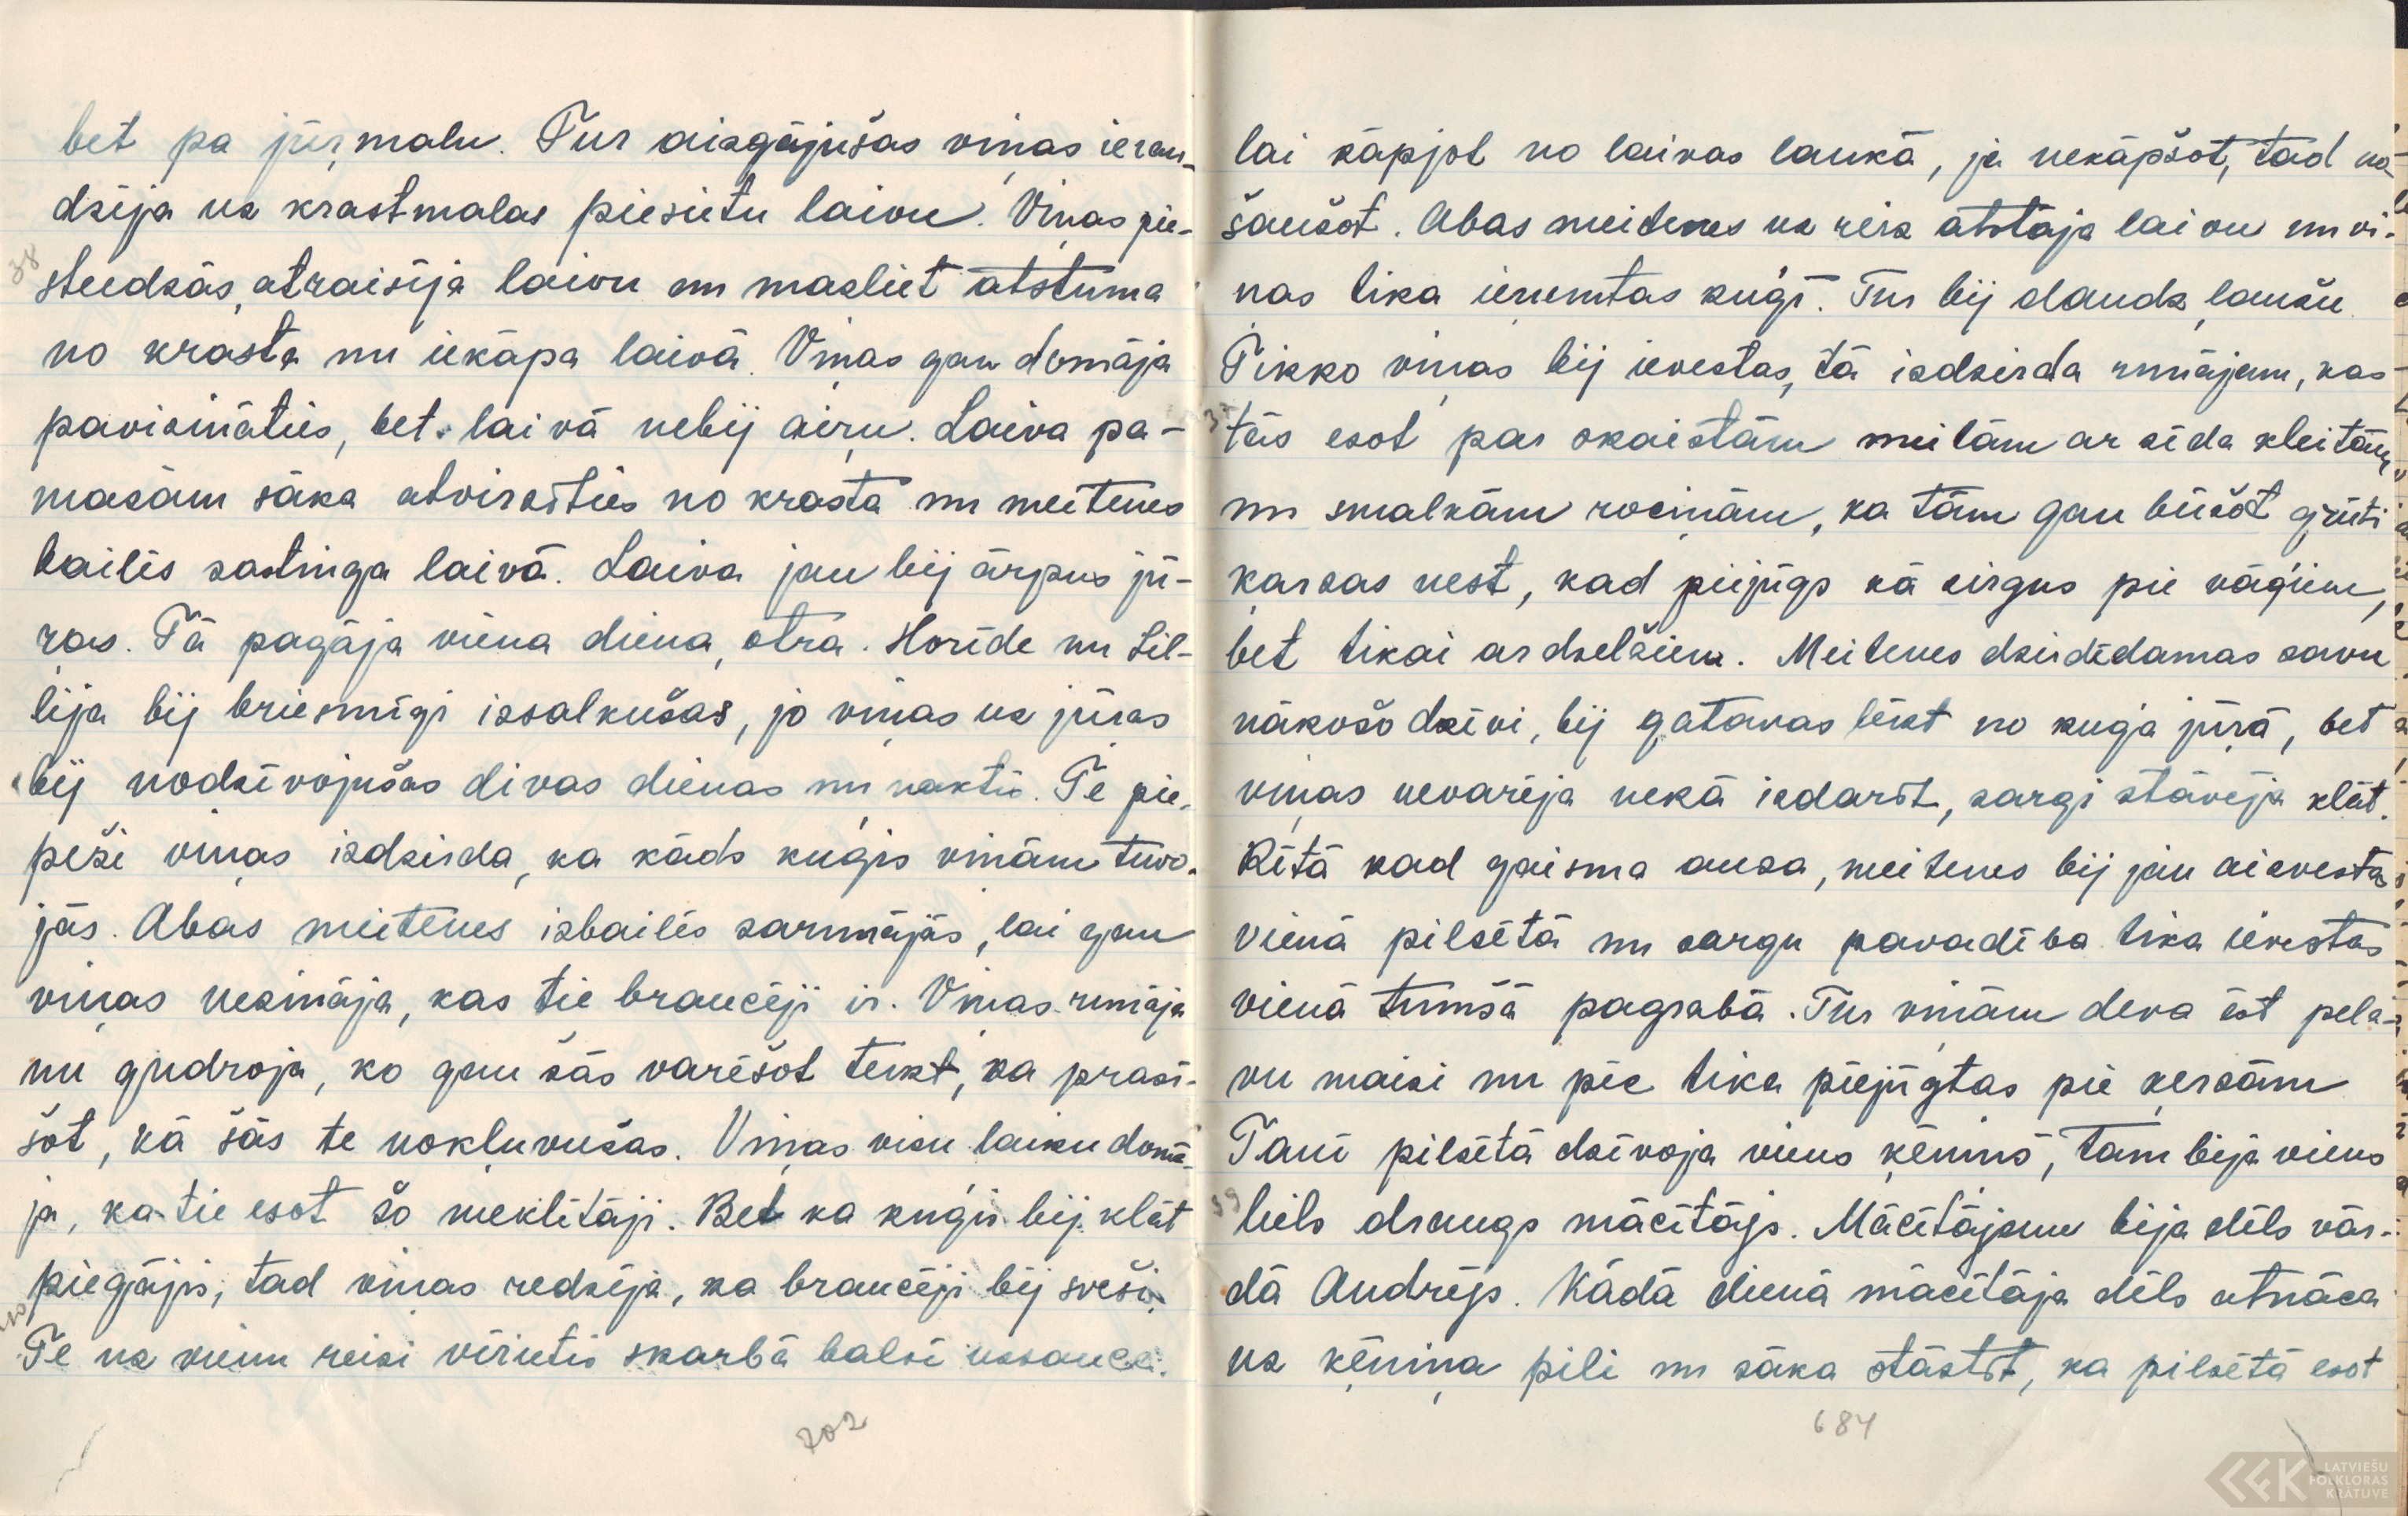 bet pa jūŗmalu. Tur aizgājušas viņas ierau-
dzīja uz krastmalas piesietu laivu. Viņas pie-
38
steidzās, atraisīja laivu un mazliet atstūma
no krasta un iekāpa laivā. Viņas gan domāja
pavizināties, bet laivā nebij airu. Laiva pa-
mazām sāka atvirzīties no krasta un meitenes
bailēs sastinga laivā. Laiva jau bij ārpus jū-
ŗas. Tā pagāja viena diena, otra. Horīde un Lil-
lija bij briesmīgi izsalkušas, jo viņas uz jūras
bij nodzīvojušas divas dienas un naktis. Te pie-
peži viņas izdzirda, ka kāds kuģis viņām tuvo-
jās. Abas meitenes izbailēs sarunājās, lai gan
viņas nezināja, kas tie braucēji ir. Viņas runāja
un gudroja, ko gan šās varēšot teikt, ka prasī-
šot, kā šās te nokļuvušas. Viņas visu laiku domā-
ja, ka tie esot šo meklētāji. Bet ka kuģis bij klāt
piegājis, tad viņas redzēja, ka braucēji bij sveši.
Te uz vienu reizi vīrietis skarbā balsī uzsauca:
702
lai kāpjot no laivas laukā, ja nekāpšot, tad no-
šaušot. Abas meitenes uz reiz atstāja laivu un vi-
ņas tika ieņemtas kuģī. Tur bij daudz ļaužu.
Tikko viņas bij ievestas, tā izdzirda runājam, kas
tās esot par skaistām meitām ar zīda kleitām
un smalkām rociņām, ka tām gan būšot grūti
ķarzas vest, kad piejūgs kā zirgus pie vāģiem,
bet tikai ar dzelžiem. Meitenes dzirdēdamas savu
nākošo dzīvi, bij gatavas lēkt no kuģa jūŗā, bet
viņas nevarēja nekā izdarīt, sargi stāvēja klāt.
Rītā kad gaisma ausa, meitenes bij jau aizvestas
vienā pilsētā un sargu pavadība tika ievestas
vienā tumšā pagrabā. Tur viņām deva ēst pela-
vu maizi un pēc tika piejūgtas pie ķerzām
Tanī pilsētā dzīvoja viens ķēniņš, tam bija viens
39
liels draugs mācītājs. Mācītājam bija dēls vār-
dā Andrejs. Kādā dienā mācītāja dēls atnāca
uz ķēniņa pili un sāka stāstīt, ka pilsētā esot
684
LATVIEŠU
FOLKLORAS
KRĀTUVE